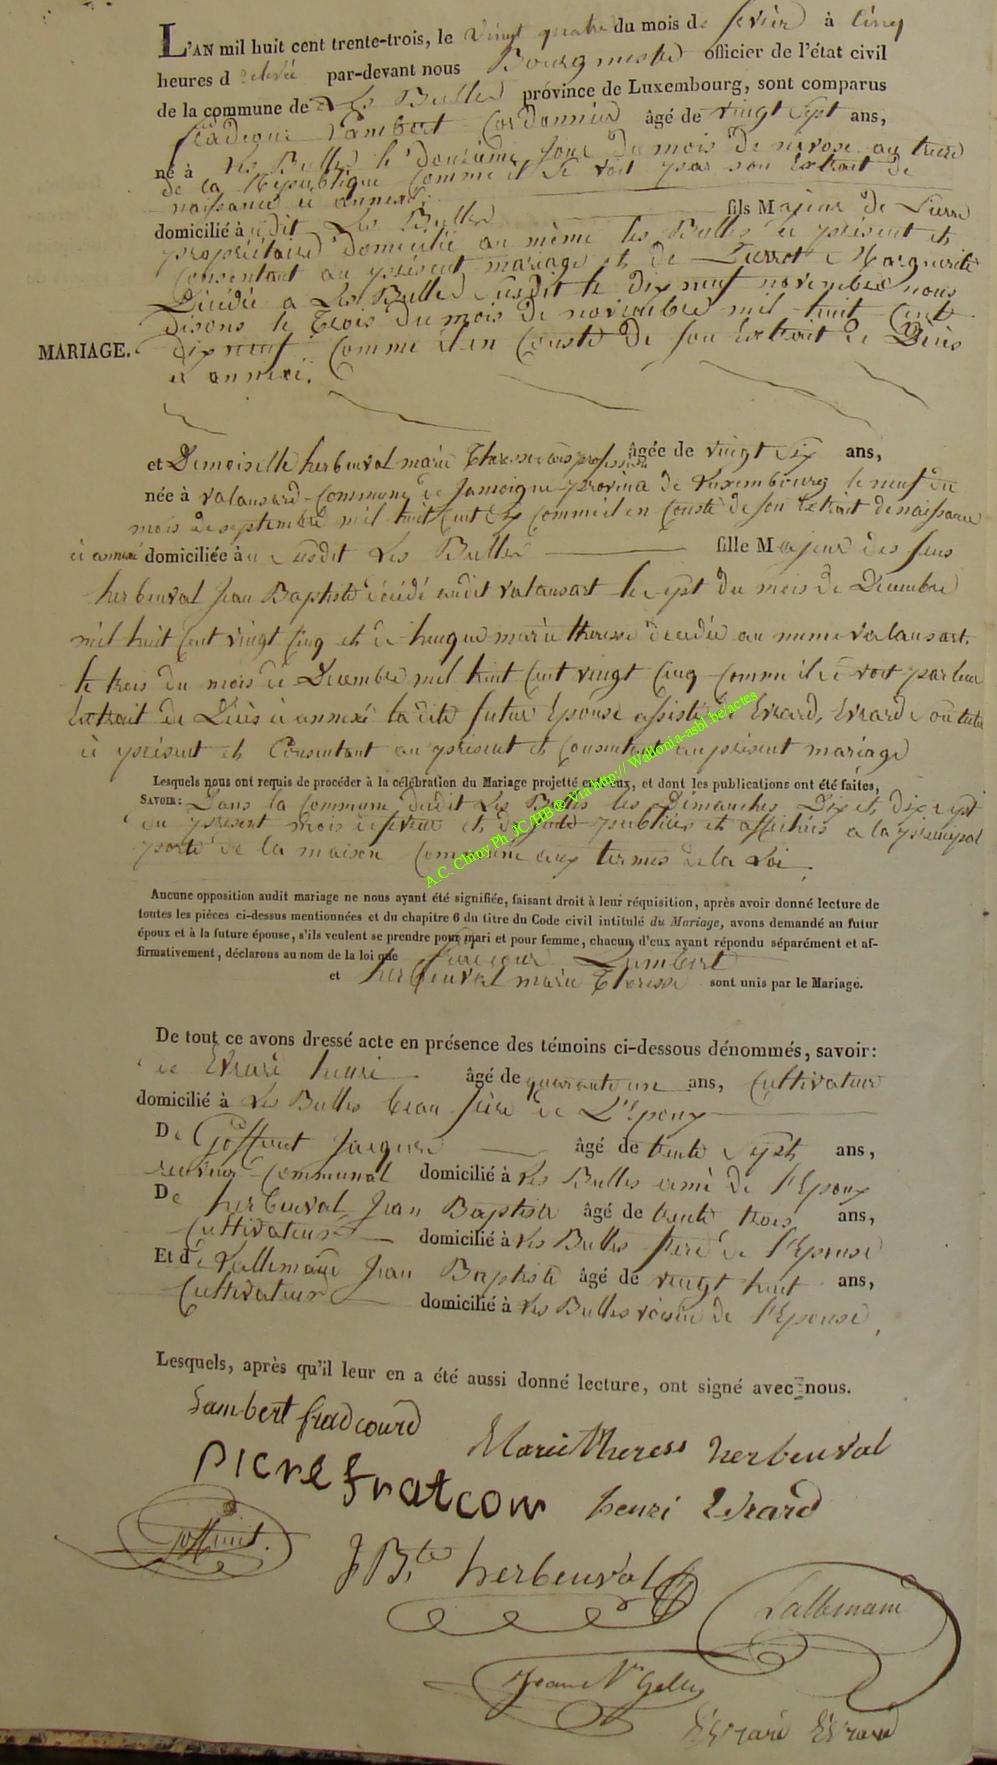 L'AN mil huit cent trente-trois, le vingt quatre du mois de fevrier à cinq
heures d par-devant nous Bourgmestre officier de l'état civil
de la commune de Les Bulles province de Luxembourg, sont comparus
Lambert Cordonnier âgé de vingt sept ans,
né à Les Bulles le douzieme jour du mois de nivose an treize
de la République comme il se voit par son Extrait de
naissance ci annexé.
domicilié à udit Les Bulles fils Majeur de Pierre
propriétaire domicilié au même les Bulles ici présent et
Consentant au présent mariage et de Pierret Marguerite
Décédée a Les Bulles susdit le dix neuf novembre nous
disons le trois du mois de novembre mil huit Cent
dix neuf Comme il en Conste de son Extrait de Décès
MARIAGE.
ci annexé.
et Demoiselle herbeuval marie Theresse sans profession âgée de vingt six ans,
née à valansard Commune de Jamoigne province de Luxembourg le neuf du
mois de septembre mil huit Cent six Comme il en Conste de son Extrait de naissance
ci annexé domiciliée à u susdit Les Bulles fille Majeur des feus
herbeuval Jean Baptiste décédé audit valansart le sept du mois de Decembre
mil huit Cent vingt Cinq et de marie theresse decedée au meme valansart.
le trois du mois de Decembre mil huit Cent vingt Cinq Comme il se voit par leur
Extrait de Décès ci annexé la dite futur Epouse assisté de Evrard, Evrard
ci présent et Consentant au présent et Consentant au présent mariage
Lesquels nous ont requis de procéder à la célébration du Mariage projetté entr'eux, et dont les publications ont été faites,
SAVOIR: Dans la Commune dudit Les Bulles les Dimanches Dix et dix sept
du present mois de fevrier et de suite publiées et affichées a la principal
porte de la maison Commune aux termes de la Loi.
A.C. Chiny Ph. JC/HB ® Via http:// Wallonia-asbl be/actes
Aucune opposition audit mariage ne nous ayant été signifiée, faisant droit à leur réquisition, après avoir donné lecture de
toutes les pièces ci-dessus mentionnées et du chapitre 6 du titre du Code civil intitulé du Mariage, avons demandé au futur
époux et à la future épouse, s'ils veulent se prendre pour mari et pour femme, chacun d'eux ayant répondu séparément et af-
firmativement, déclarons au nom de la loi que Lambert
et herbeuval marie Theresse sont unis par le Mariage.
De tout ce avons dressé acte en présence des témoins ci-dessous dénommés, savoir:
de Evrard henri âgé de quarante un ans, Cultivateur
domicilié à Les Bulles beau frère de L'Epoux
De Goffinet Jacques âgé de trente sept ans,
receveur Communal domicilié à Les Bulles ami de l'Epoux
De herbeuval Jean Baptiste âgé de trente trois ans,
Cultivateur domicilié à Les Bulles frere de l'Epouse
Et de Lallemand Jean Baptiste âgé de vingt huit ans,
Cultivateur domicilié à Les Bulles voisin de l'Epouse,
Lesquels, après qu'il leur en a été aussi donné lecture, ont signé avec nous.
Lambert fradcourd
Marie theress herbeuval
PIerre fratcour henri Evrard
Goffinet.
J Bte herbeuval
Lallemand
Jean Nas
Evrard Evrard